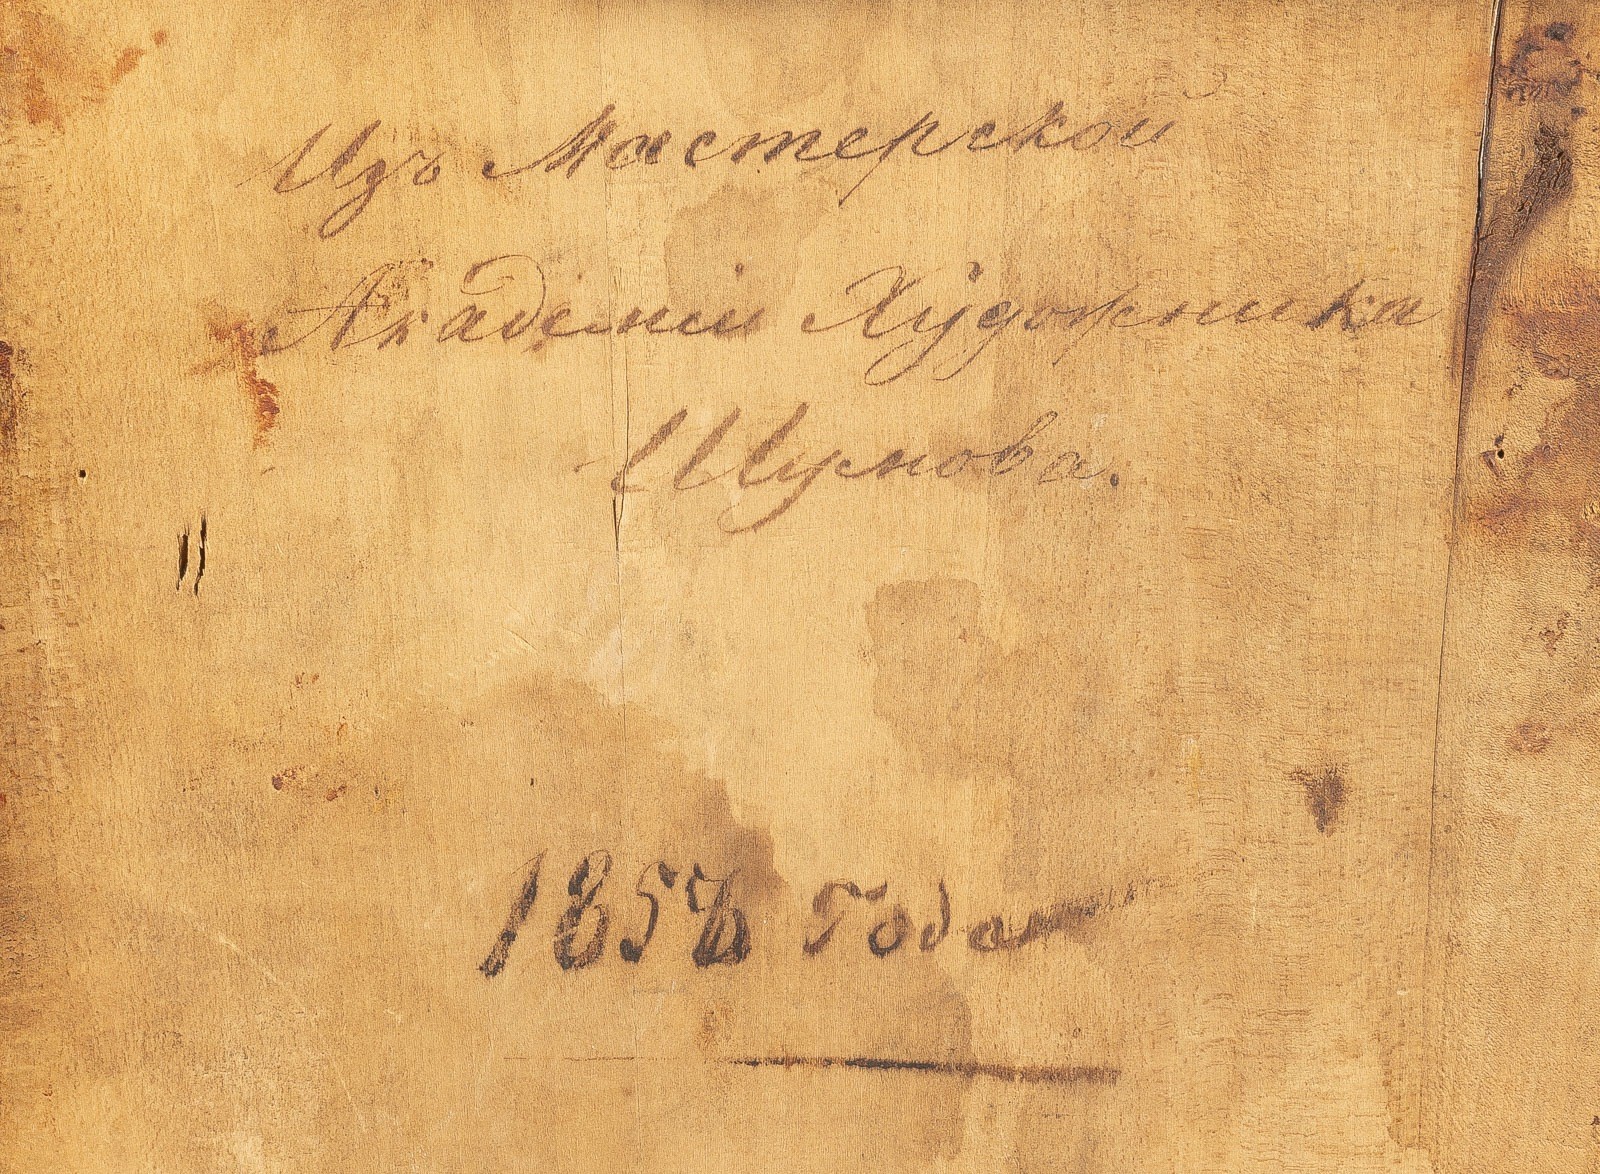 Изъ Мастерской
Академіи Художника
Шумова.
1858 Года